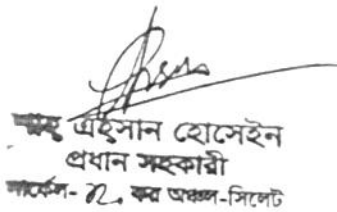 মোঃ এহসান হোসেইন
প্রধান সহকারী
সার্কেল-২, কর অঞ্চল-সিলেট